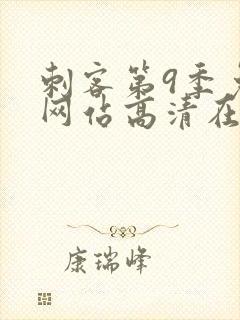 刺客第9季
网佔高清在
康瑞峰